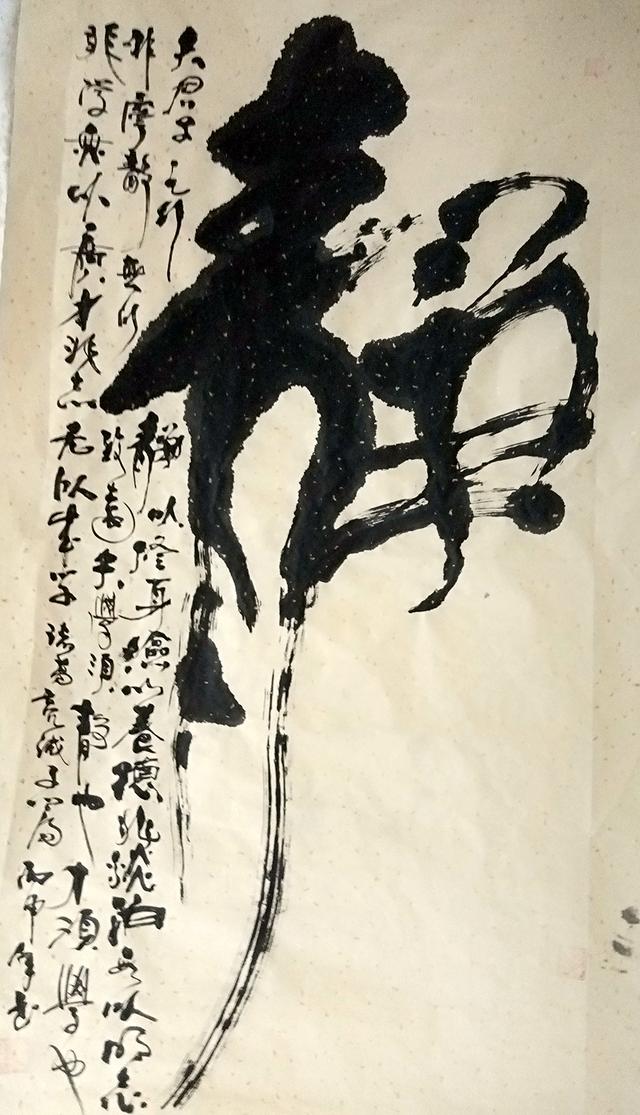 靜
夫君子之行
靜以修身儉以養德非澹泊無以明志
非寧靜無以
致遠夫學須靜也才須學也
非學無以廣才非志無以成学
諸葛亮誡子篇
丙申年書